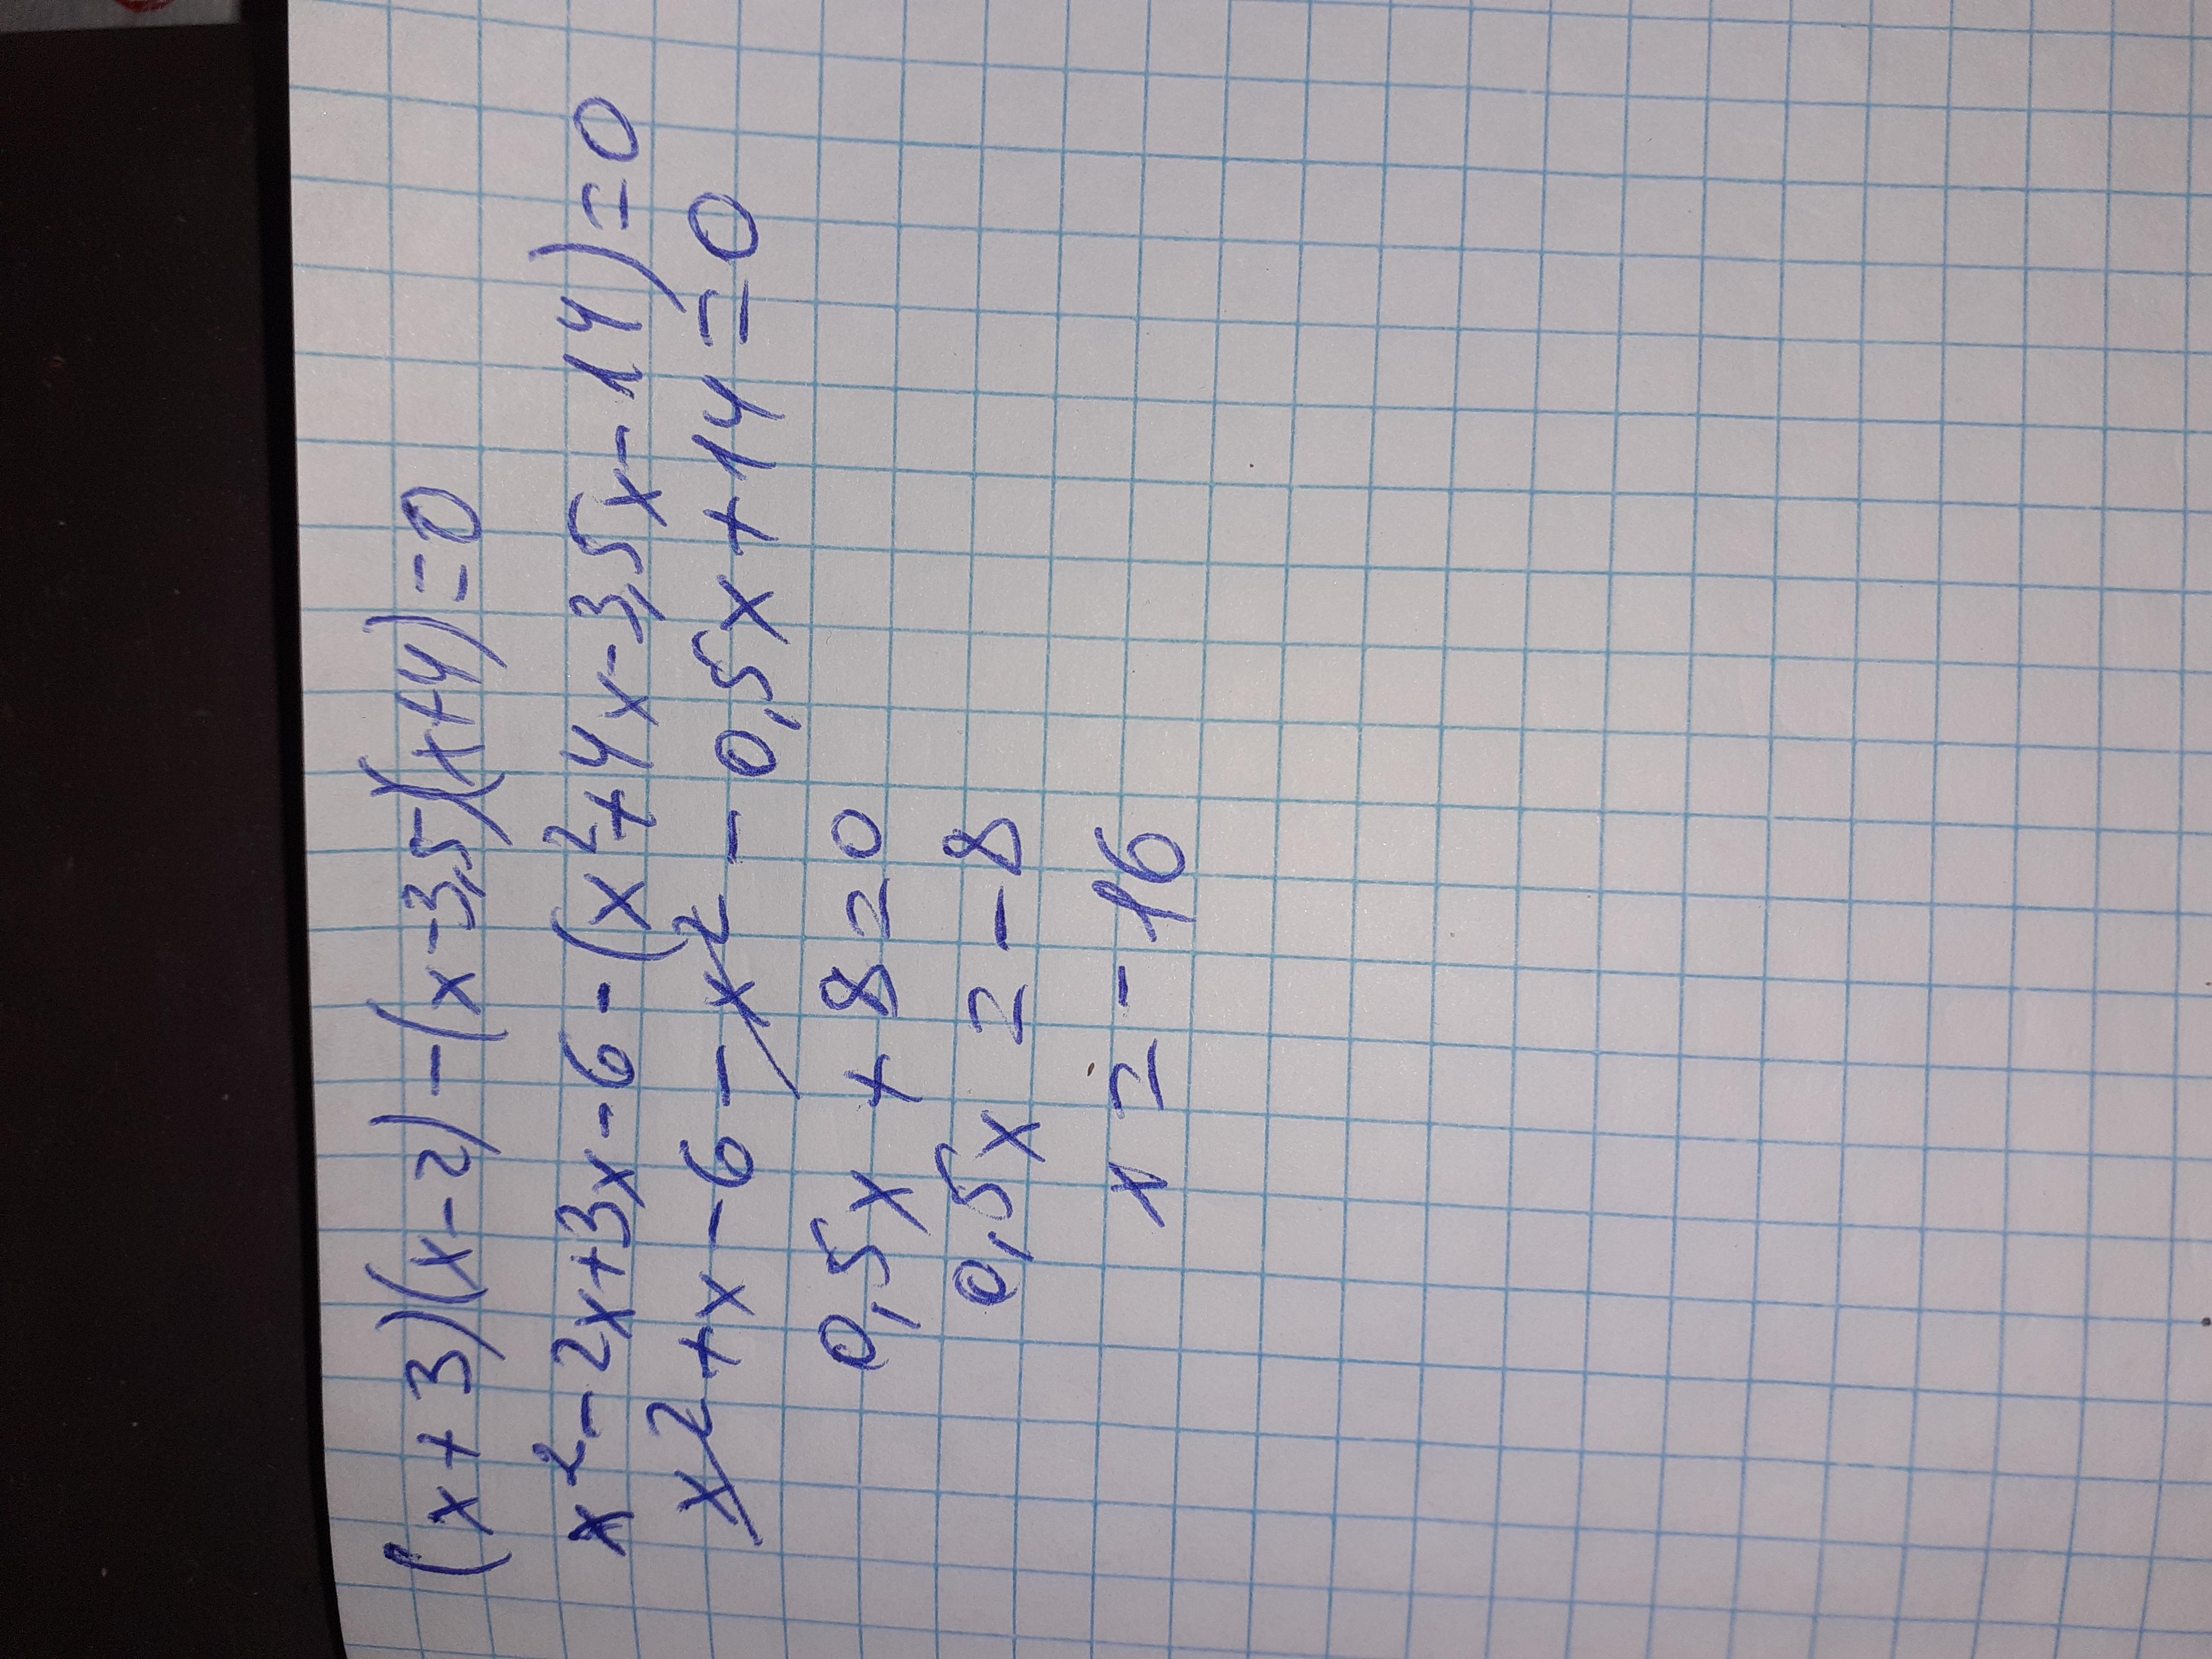 (x+3)(x-2)-(x-3,5)(x+4)=0
x²-2x+3x-6-(x²+4x-3,5x-14)=0
x²+x-6-x²-0,5x+14=0
0,5x+8=0
0,5x=-8
x=-16